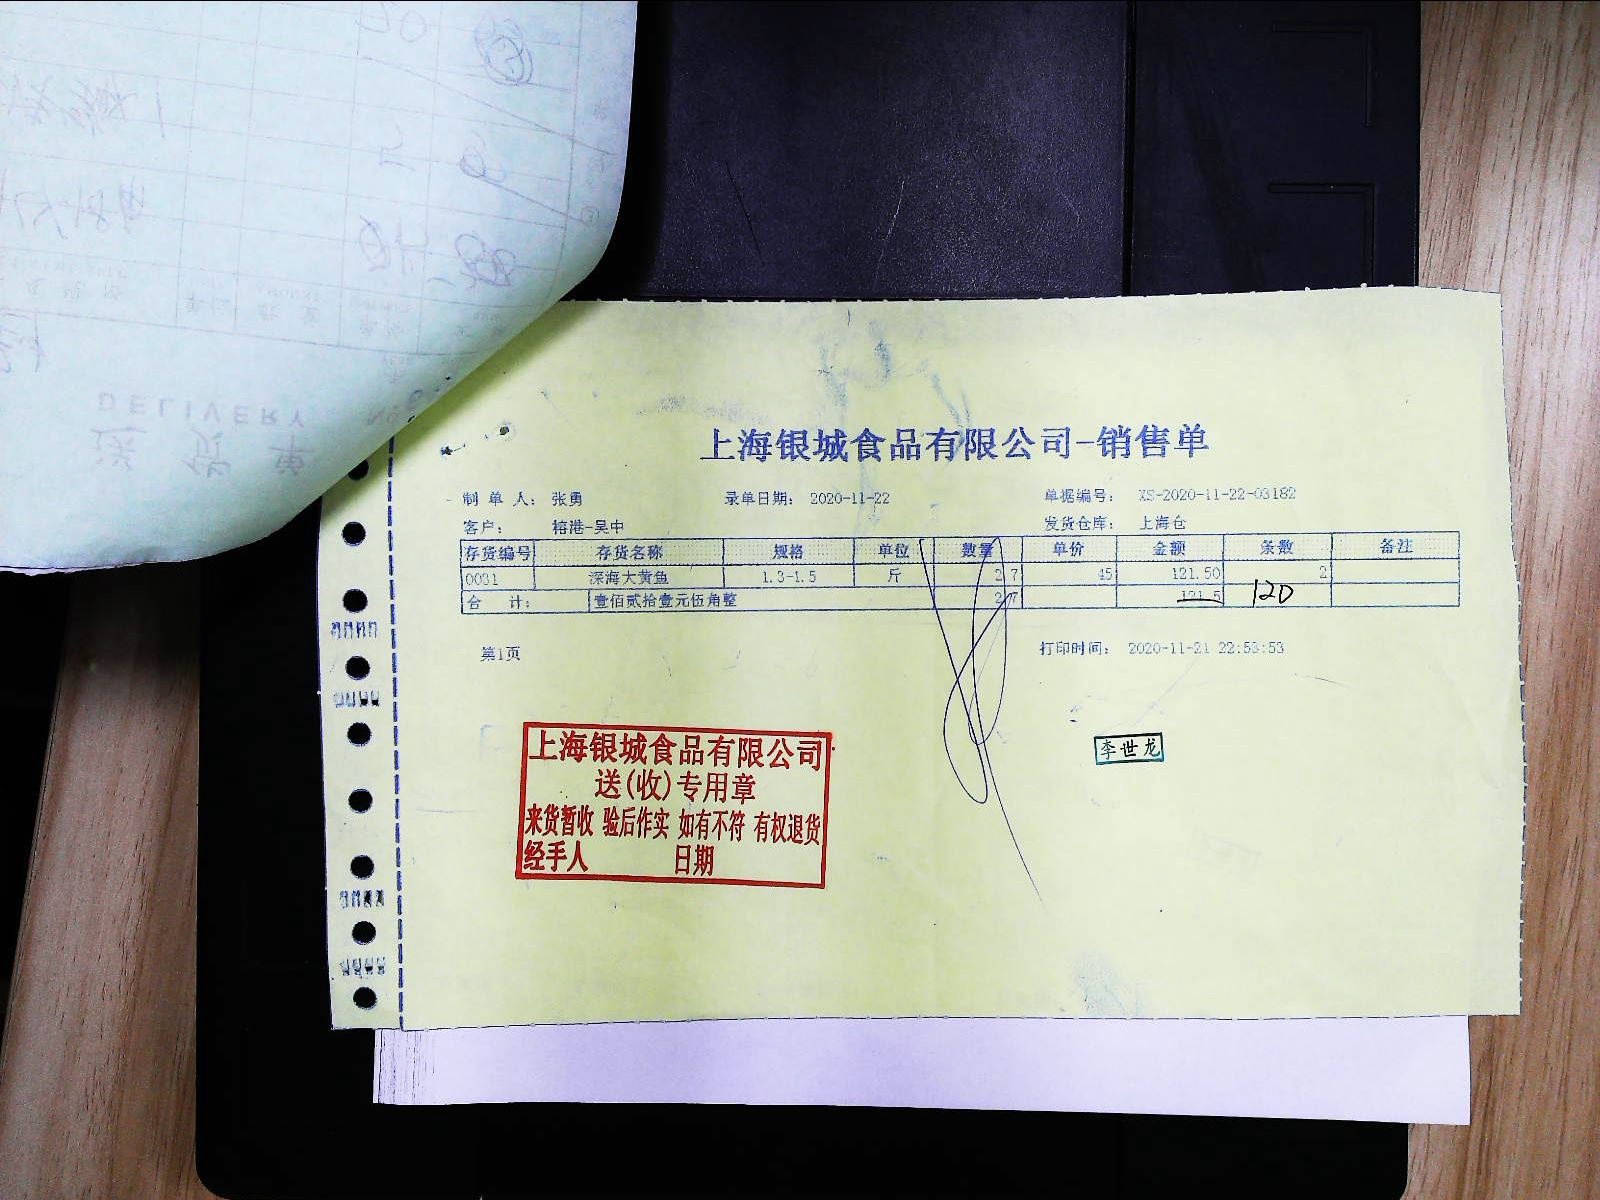 DELIVERY
送 货 单
上海银城食品有限公司-销售单
制 单 人: 张勇 录单日期: 2020-11-22 单据编号: XS-2020-11-22-03182
客户: 榕港-吴中 发货仓库: 上海仓
存货编号 存货名称 规格 单位 数量 单价 金额 条数 备注
0031 深海大黄鱼 1.3-1.5 斤 2.7 45 121.50 2
合 计: 壹佰贰拾壹元伍角整 2.7 121.5 120
第1页 打印时间: 2020-11-21 22:53:53
李世龙
上海银城食品有限公司
送(收)专用章
来货暂收 验后作实 如有不符 有权退货
经手人 日期